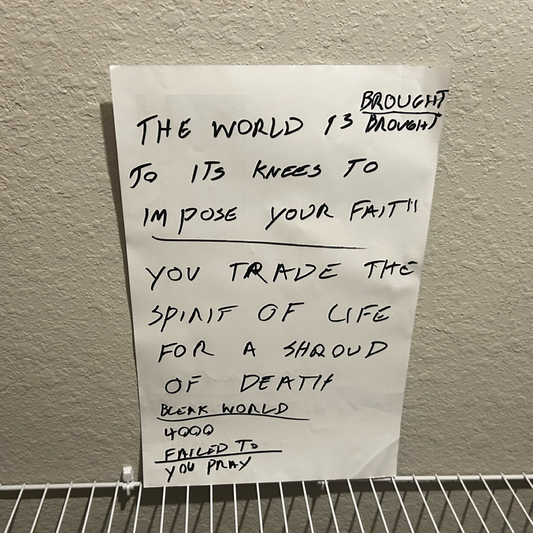 BROUGHT
THE WORLD IS BROUGHT
TO ITS KNEES TO
IMPOSE YOUR FAITH
YOU TRADE THE
SPIRIT OF LIFE
FOR A SHROUD
OF DEATH
BLEAK WORLD
4000
FAILED TO
YOU PRAY